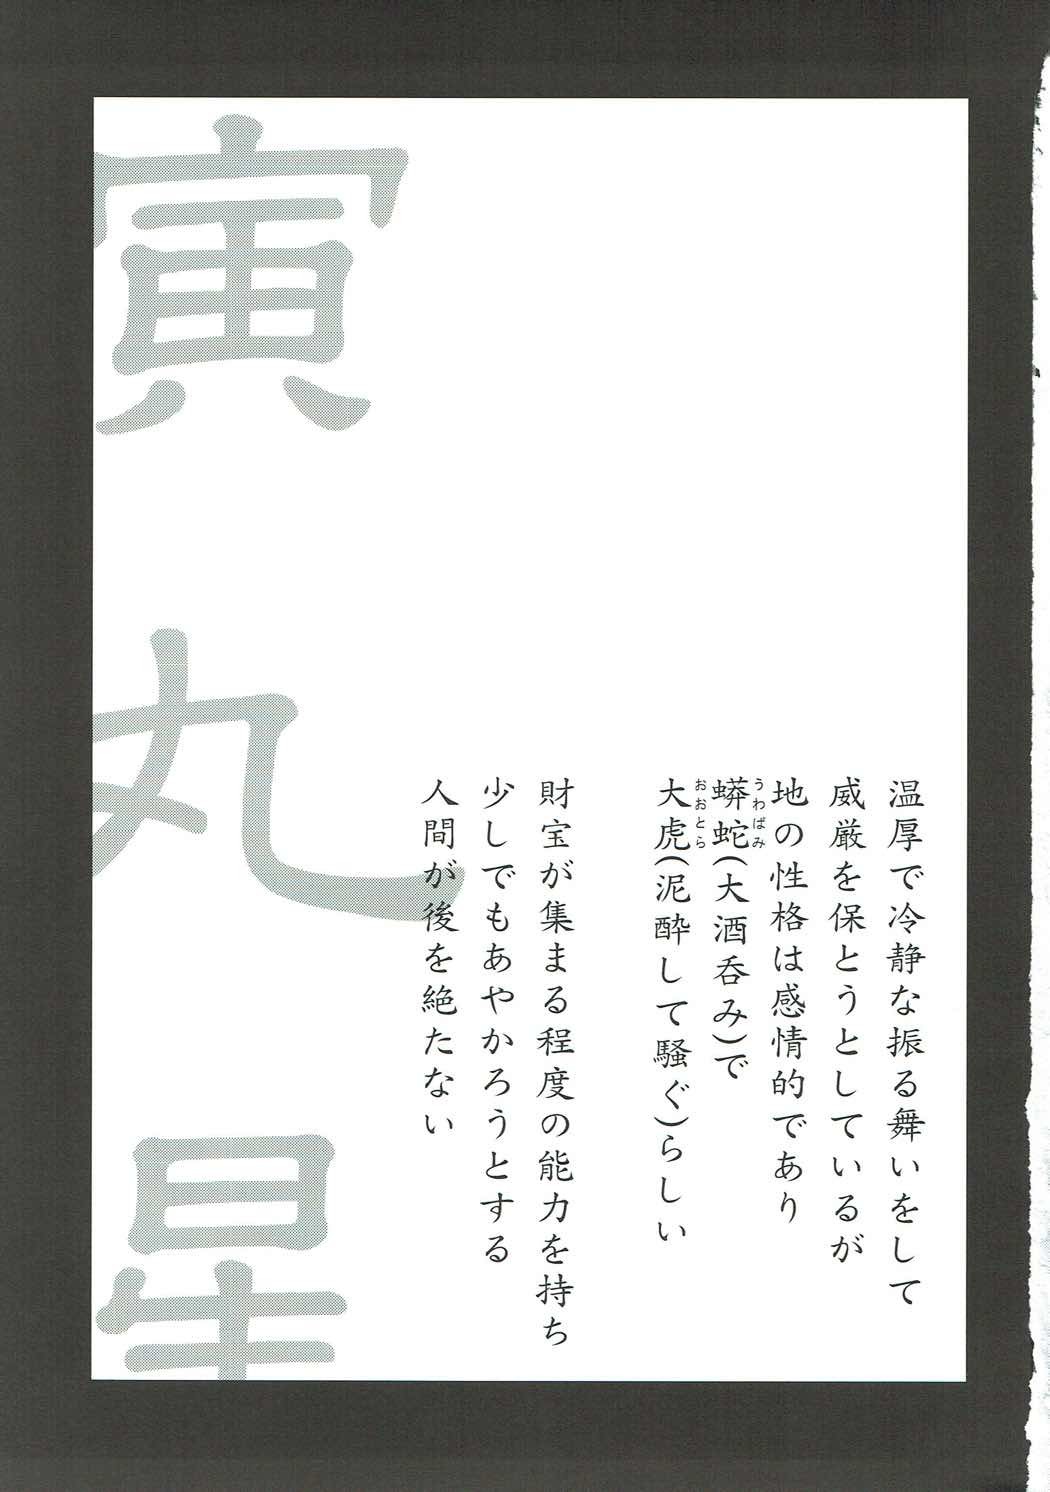 温厚で冷静な振る舞いをして
威厳を保とうとしているが
地の性格は感情的であり
蟒蛇(大酒呑み)で
うわばみ
大虎(泥酔して騒ぐ)らしい
おおとら
財宝が集まる程度の能力を持ち
少しでもあやかろうとする
人間が後を絶たない
寅丸星